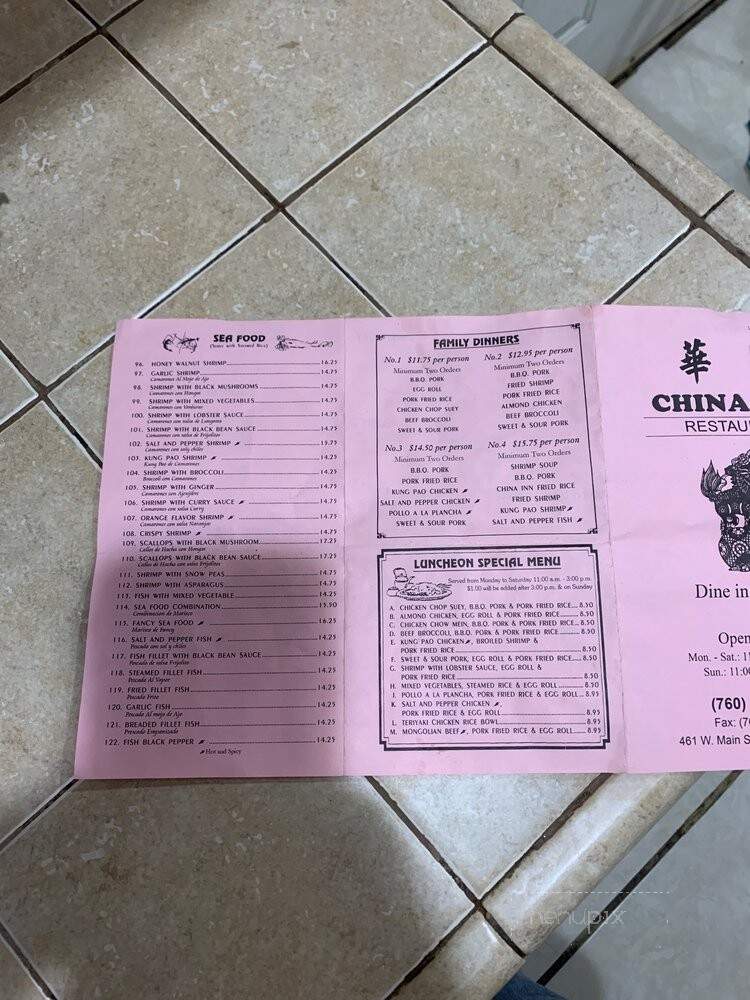 SEA FOOD
(Serve with Steamed Rice)
96. HONEY WALNUT SHRIMP 16.25
97. GARLIC SHRIMP 14.75
Camarones Al Mojo de Ajo
98. SHRIMP WITH BLACK MUSHROOMS 14.25
Camarones con Hongos
99. SHRIMP WITH MIXED VEGETABLES 14.25
Camarones con Verduras
100. SHRIMP WITH LOBSTER SAUCE 14.25
Camarones con salsa de Langosta
101. SHRIMP WITH BLACK BEAN SAUCE 14.25
Camarones con salsa de Frijolitos
102. SALT AND PEPPER SHRIMP 15.75
Camarones con sal y chiles
103. KUNG PAO SHRIMP 14.25
Kung Pao de Camarones
104. SHRIMP WITH BROCCOLI 14.25
Broccoli con Camarones
105. SHRIMP WITH GINGER 14.25
Camarones con Ajenjibre
106. SHRIMP WITH CURRY SAUCE 14.25
Camarones con salsa Curry
107. ORANGE FLAVOR SHRIMP 14.75
Camarones con salsa Naranjas
108. CRISPY SHRIMP 14.75
109. SCALLOPS WITH BLACK MUSHROOM 17.25
Callos de Hacha con Hongos
110. SCALLOPS WITH BLACK BEAN SAUCE 17.25
Callos de Hacha con salsa Frijolitos
111. SHRIMP WITH SNOW PEAS 14.75
112. SHRIMP WITH ASPARAGUS 14.75
113. FISH WITH MIXED VEGETABLE 14.25
114. SEA FOOD COMBINATION 15.50
Combinación de Marisco
115. FANCY SEA FOOD 16.25
Marisco de Fancy
116. SALT AND PEPPER FISH 14.25
Pescado con sal y chiles
117. FISH FILLET WITH BLACK BEAN SAUCE 14.25
Pescado de salsa Frijolitos
118. STEAMED FILLET FISH 14.25
Pescado Al Vapor
119. FRIED FILLET FISH 14.25
Pescado Frito
120. GARLIC FISH 14.25
Pescado Al mojo de Ajo
121. BREADED FILLET FISH 14.25
Pescado Empanizado
122. FISH BLACK PEPPER 14.25
Hot and Spicy
FAMILY DINNERS
No.1 $11.75 per person
Minimum Two Orders
B.B.Q. PORK
EGG ROLL
PORK FRIED RICE
CHICKEN CHOP SUEY
BEEF BROCCOLI
SWEET & SOUR PORK
No.2 $12.95 per person
Minimum Two Orders
B.B.Q. PORK
FRIED SHRIMP
PORK FRIED RICE
ALMOND CHICKEN
BEEF BROCCOLI
SWEET & SOUR PORK
No.3 $14.50 per person
Minimum Two Orders
B.B.Q. PORK
PORK FRIED RICE
KUNG PAO CHICKEN
SALT AND PEPPER CHICKEN
POLLO A LA PLANCHA
SWEET & SOUR PORK
No.4 $15.75 per person
Minimum Two Orders
SHRIMP SOUP
B.B.Q. PORK
CHINA INN FRIED RICE
FRIED SHRIMP
KUNG PAO SHRIMP
SALT AND PEPPER FISH
LUNCHEON SPECIAL MENU
Served from Monday to Saturday 11:00 a.m. - 3:00 p.m.
$1.00 will be added after 3:00 p.m. & on Sunday
A. CHICKEN CHOP SUEY, B.B.Q. PORK & PORK FRIED RICE 8.50
B. ALMOND CHICKEN, EGG ROLL & PORK FRIED RICE 8.50
C. CHICKEN CHOW MEIN, B.B.Q. PORK & PORK FRIED RICE 8.50
D. BEEF BROCCOLI, B.B.Q. PORK & PORK FRIED RICE 8.50
E. KUNG PAO CHICKEN, BROILED SHRIMP &
PORK FRIED RICE 8.50
F. SWEET & SOUR PORK, EGG ROLL & PORK FRIED RICE 8.50
G. SHRIMP WITH LOBSTER SAUCE, EGG ROLL &
PORK FRIED RICE 8.50
H. MIXED VEGETABLES, STEAMED RICE & EGG ROLL 8.50
J. POLLO A LA PLANCHA, PORK FRIED RICE & EGG ROLL 8.95
K. SALT AND PEPPER CHICKEN,
PORK FRIED RICE & EGG ROLL 8.95
L. TERIYAKI CHICKEN RICE BOWL 8.95
M. MONGOLIAN BEEF, PORK FRIED RICE & EGG ROLL 8.95
華
CHINA
RESTAU
Dine in
Open
Mon. - Sat.: 11
Sun.: 11:00
(760)
Fax: (76
461 W. Main S
menupix